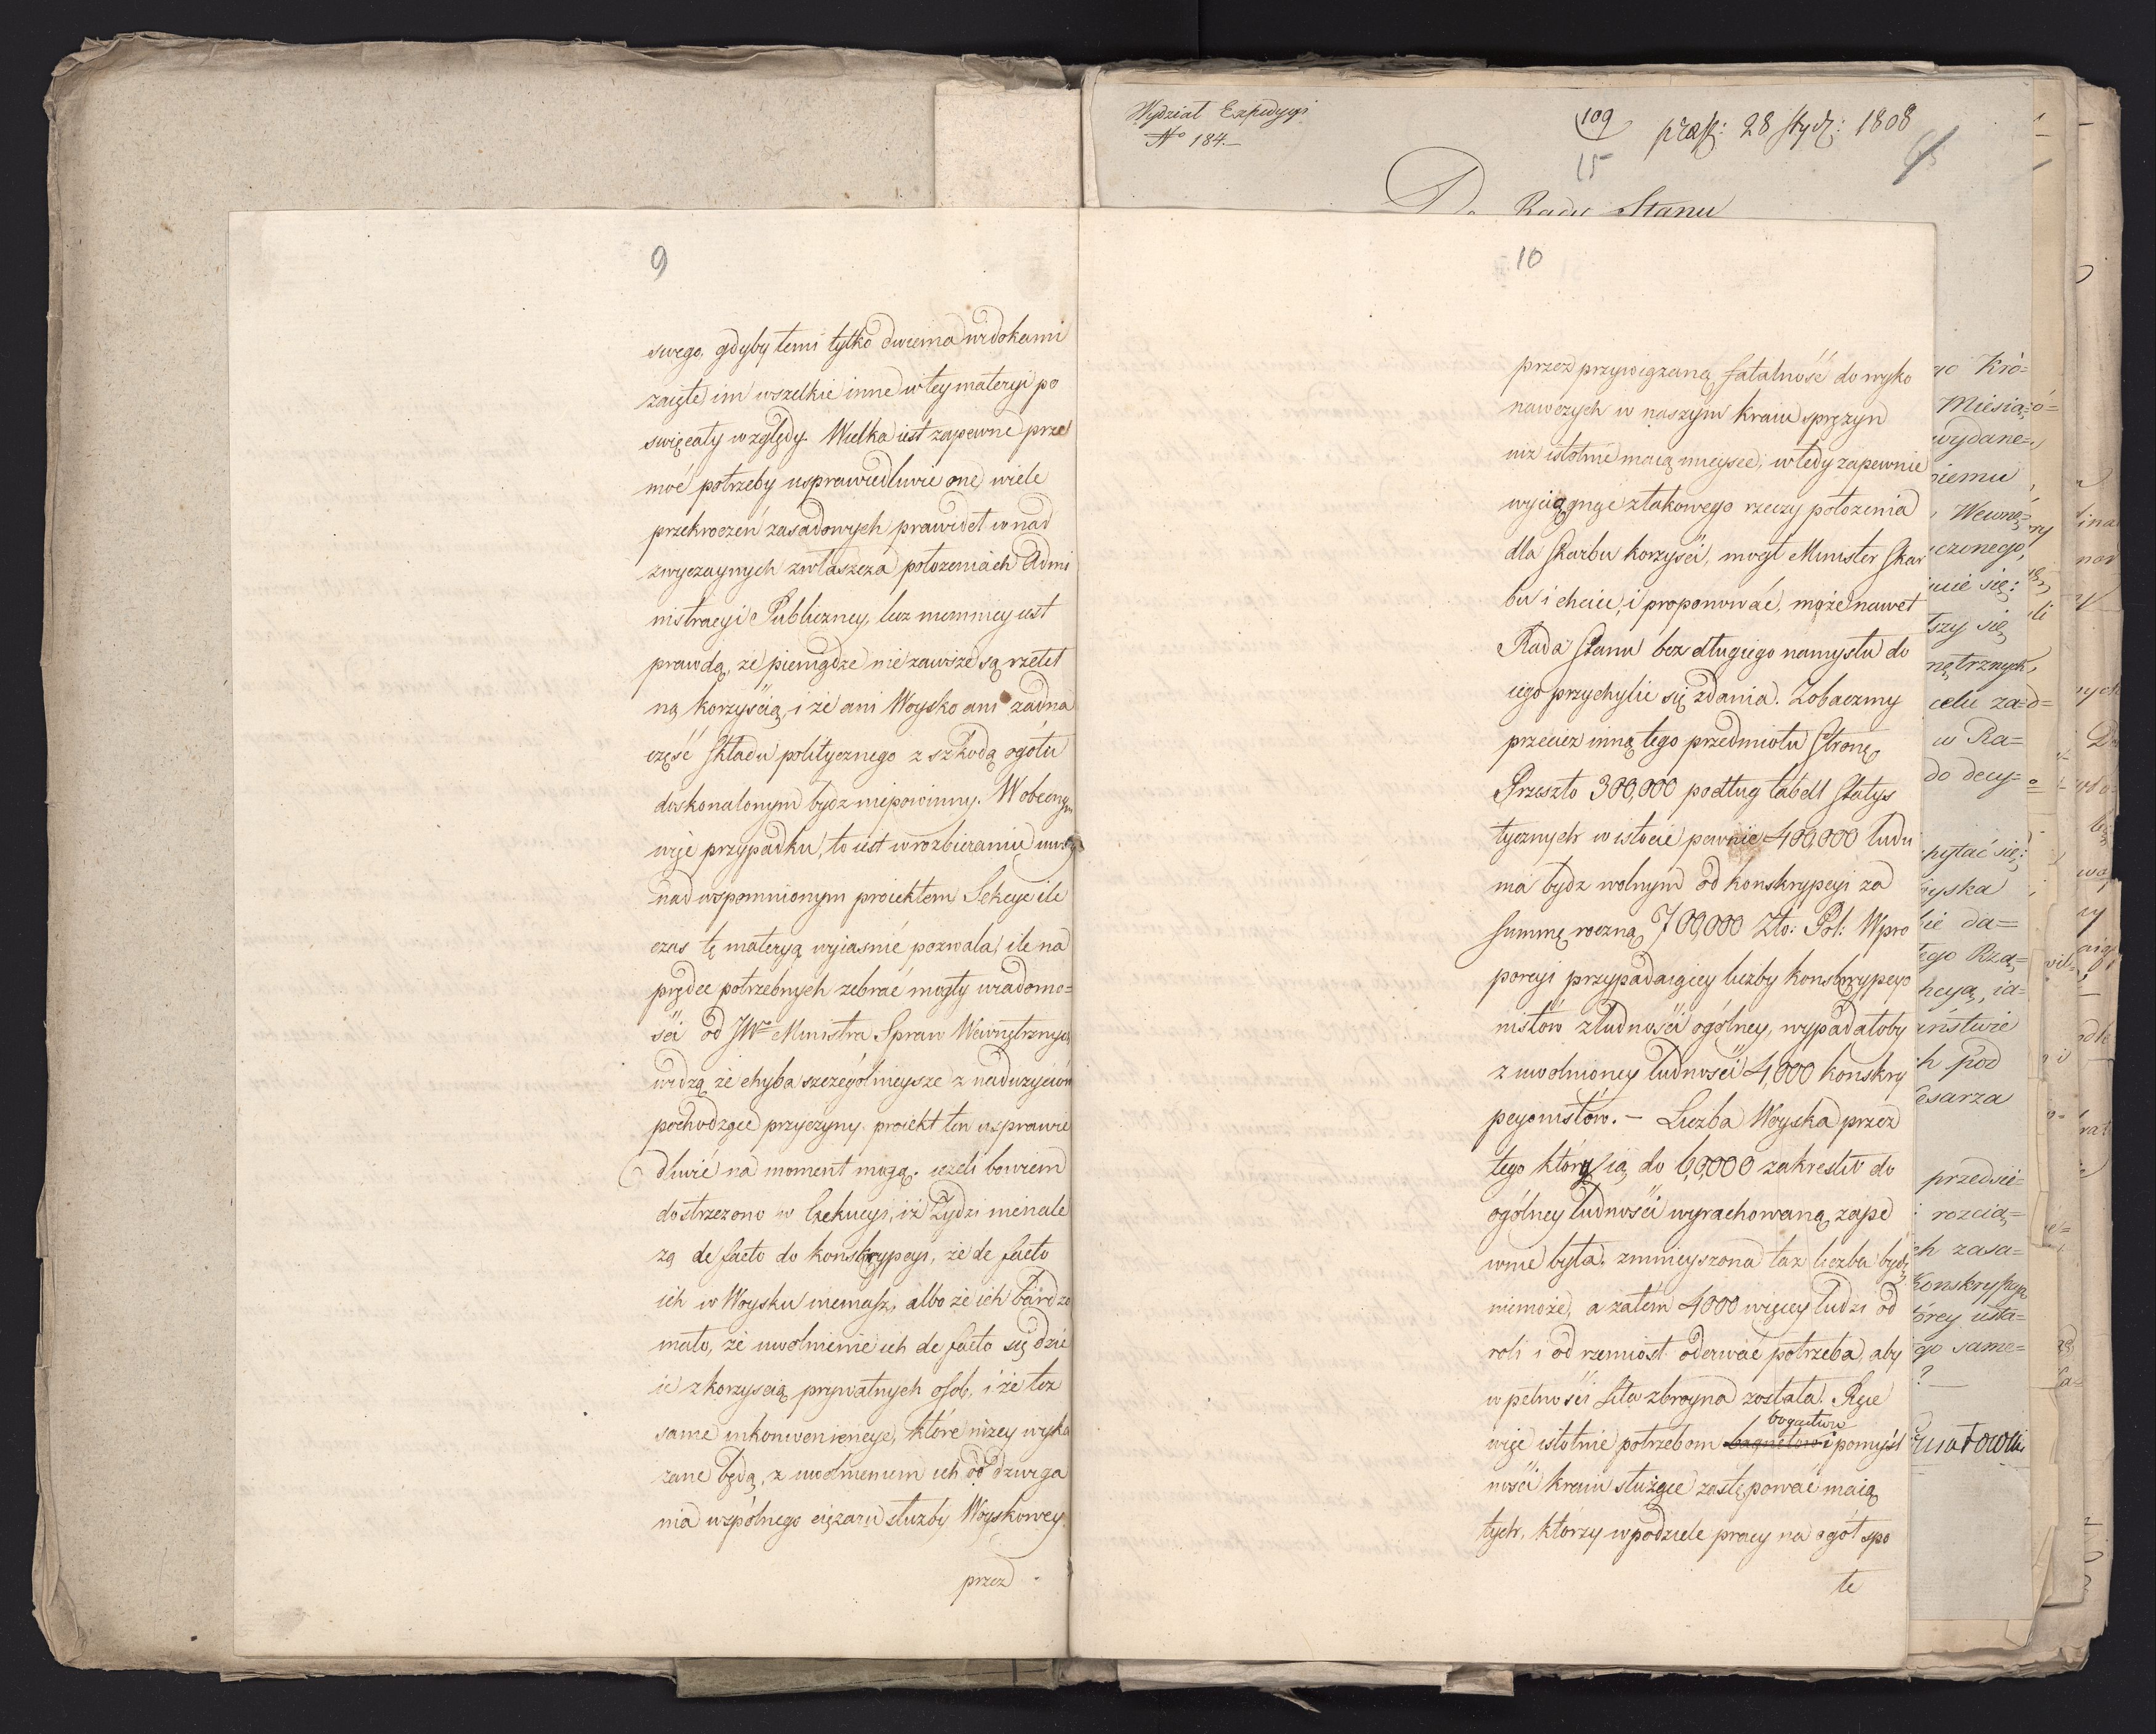 9
swego, gdyby temi tylko dwiema widokami
zaięte im wszelkie inne w tey materyi po
święcały względy. Wielka iest zapewne prze
móc potrzeby usprawiedliwić one wiele
przekroczeń zasadowych prawideł w nad
zwyczaynych zwłaszcza położeniach Admi
nistracyi Publiczney, lecz niemniey iest
prawdą, że pieniądze nie zawsze są rzetel
ną korzyścią, i że ani Woysko ani żadna
część składu politycznego z szkodą ogółu
doskonalonym bydz niepowinny. W obecnym
więc przypadku, to iest w rozbieraniu
nad wspomnionym proiektem Sekcye ile
czas tę materyą wyiaśnić pozwala, ile na
prędce potrzebnych zebrać mogły wiadomo=
ści od JWo Ministra Spraw Wewnętrznych
widzą że chyba szczególnieysze z nadużyciów
pochodzące przyczyny proiekt ten usprawie
dliwić na moment mogą. ieżeli bowiem
dostrzeżono w Exekucyi, iż Żydzi nienale
żą de facto do konskrypcyi, że de facto
ich w Woysku niemasz, albo że ich bardzo
mało, że uwolnienie ich de facto się dzie
ie z korzyścią prywatnych osob, i że też
same inkonweniencye, które niżey wyka
zane będą, z uwolnieniem ich od dzwiga
nia wspólnego ciężaru służby Woyskowey
przez
Wydział Expedycyi
No 184.
109
15
præs: 28 stycz: 1808
Do Rady Stanu
10
przez przywiązaną fatalność do wyko
nawczych w naszym kraiu sprężyn
iuż istotnie maią mieysce, wtedy zapewnie
wyciągnąć z takowego rzeczy położenia
dla skarbu korzyści, mógł Minister skar
bu i chcieć, i proponować, może nawet
Rada Stanu bez długiego namysłu do
iego przychylić się zdania. Zobaczmy
przeciez inną tego przedmiotu stronę
Przeszło 300,000 podług tabell statys
tycznych w istocie pewnie 400,000 ludu
ma bydz wolnym od konskrypcyi za
summę roczną 700,000 Zło: Pol: W pro
porcyi przypadaiącey liczby konskrypcyo
nistów z ludności ogólney, wypadałoby
z uwolnioney ludności 4,000 konskry
pcyonistów. – Liczba Woyska przez
tego który ią do 60,000 zakreślił do
ogólney ludności wyrachowaną zape
wnie była, zmnieyszona taż liczba bydź
niemoże, a zatém 4000 więcey ludzi od
roli i od rzemiosł oderwać potrzeba, aby
w pełności siła zbroyna została. Ręce
bogactwu
więc istotnie potrzebom bagnetow i pomyśl
ności kraiu służące zastępować maią
tych, którzy w podziele pracy na ogół spo
te
go Kró=
Miesią=
wydane=
niemu
Wewnę=
czonego,
szy się
nętrznych,
celu za=
w Ra=
do decy=
pytać się:
oyska
ie da=
ego Rzą=
cyą, ia=
ństwie
h pod
esarza
przedsie=
rozcią=
h zasa=
Konskrypcya
órey usta=
go same=
?